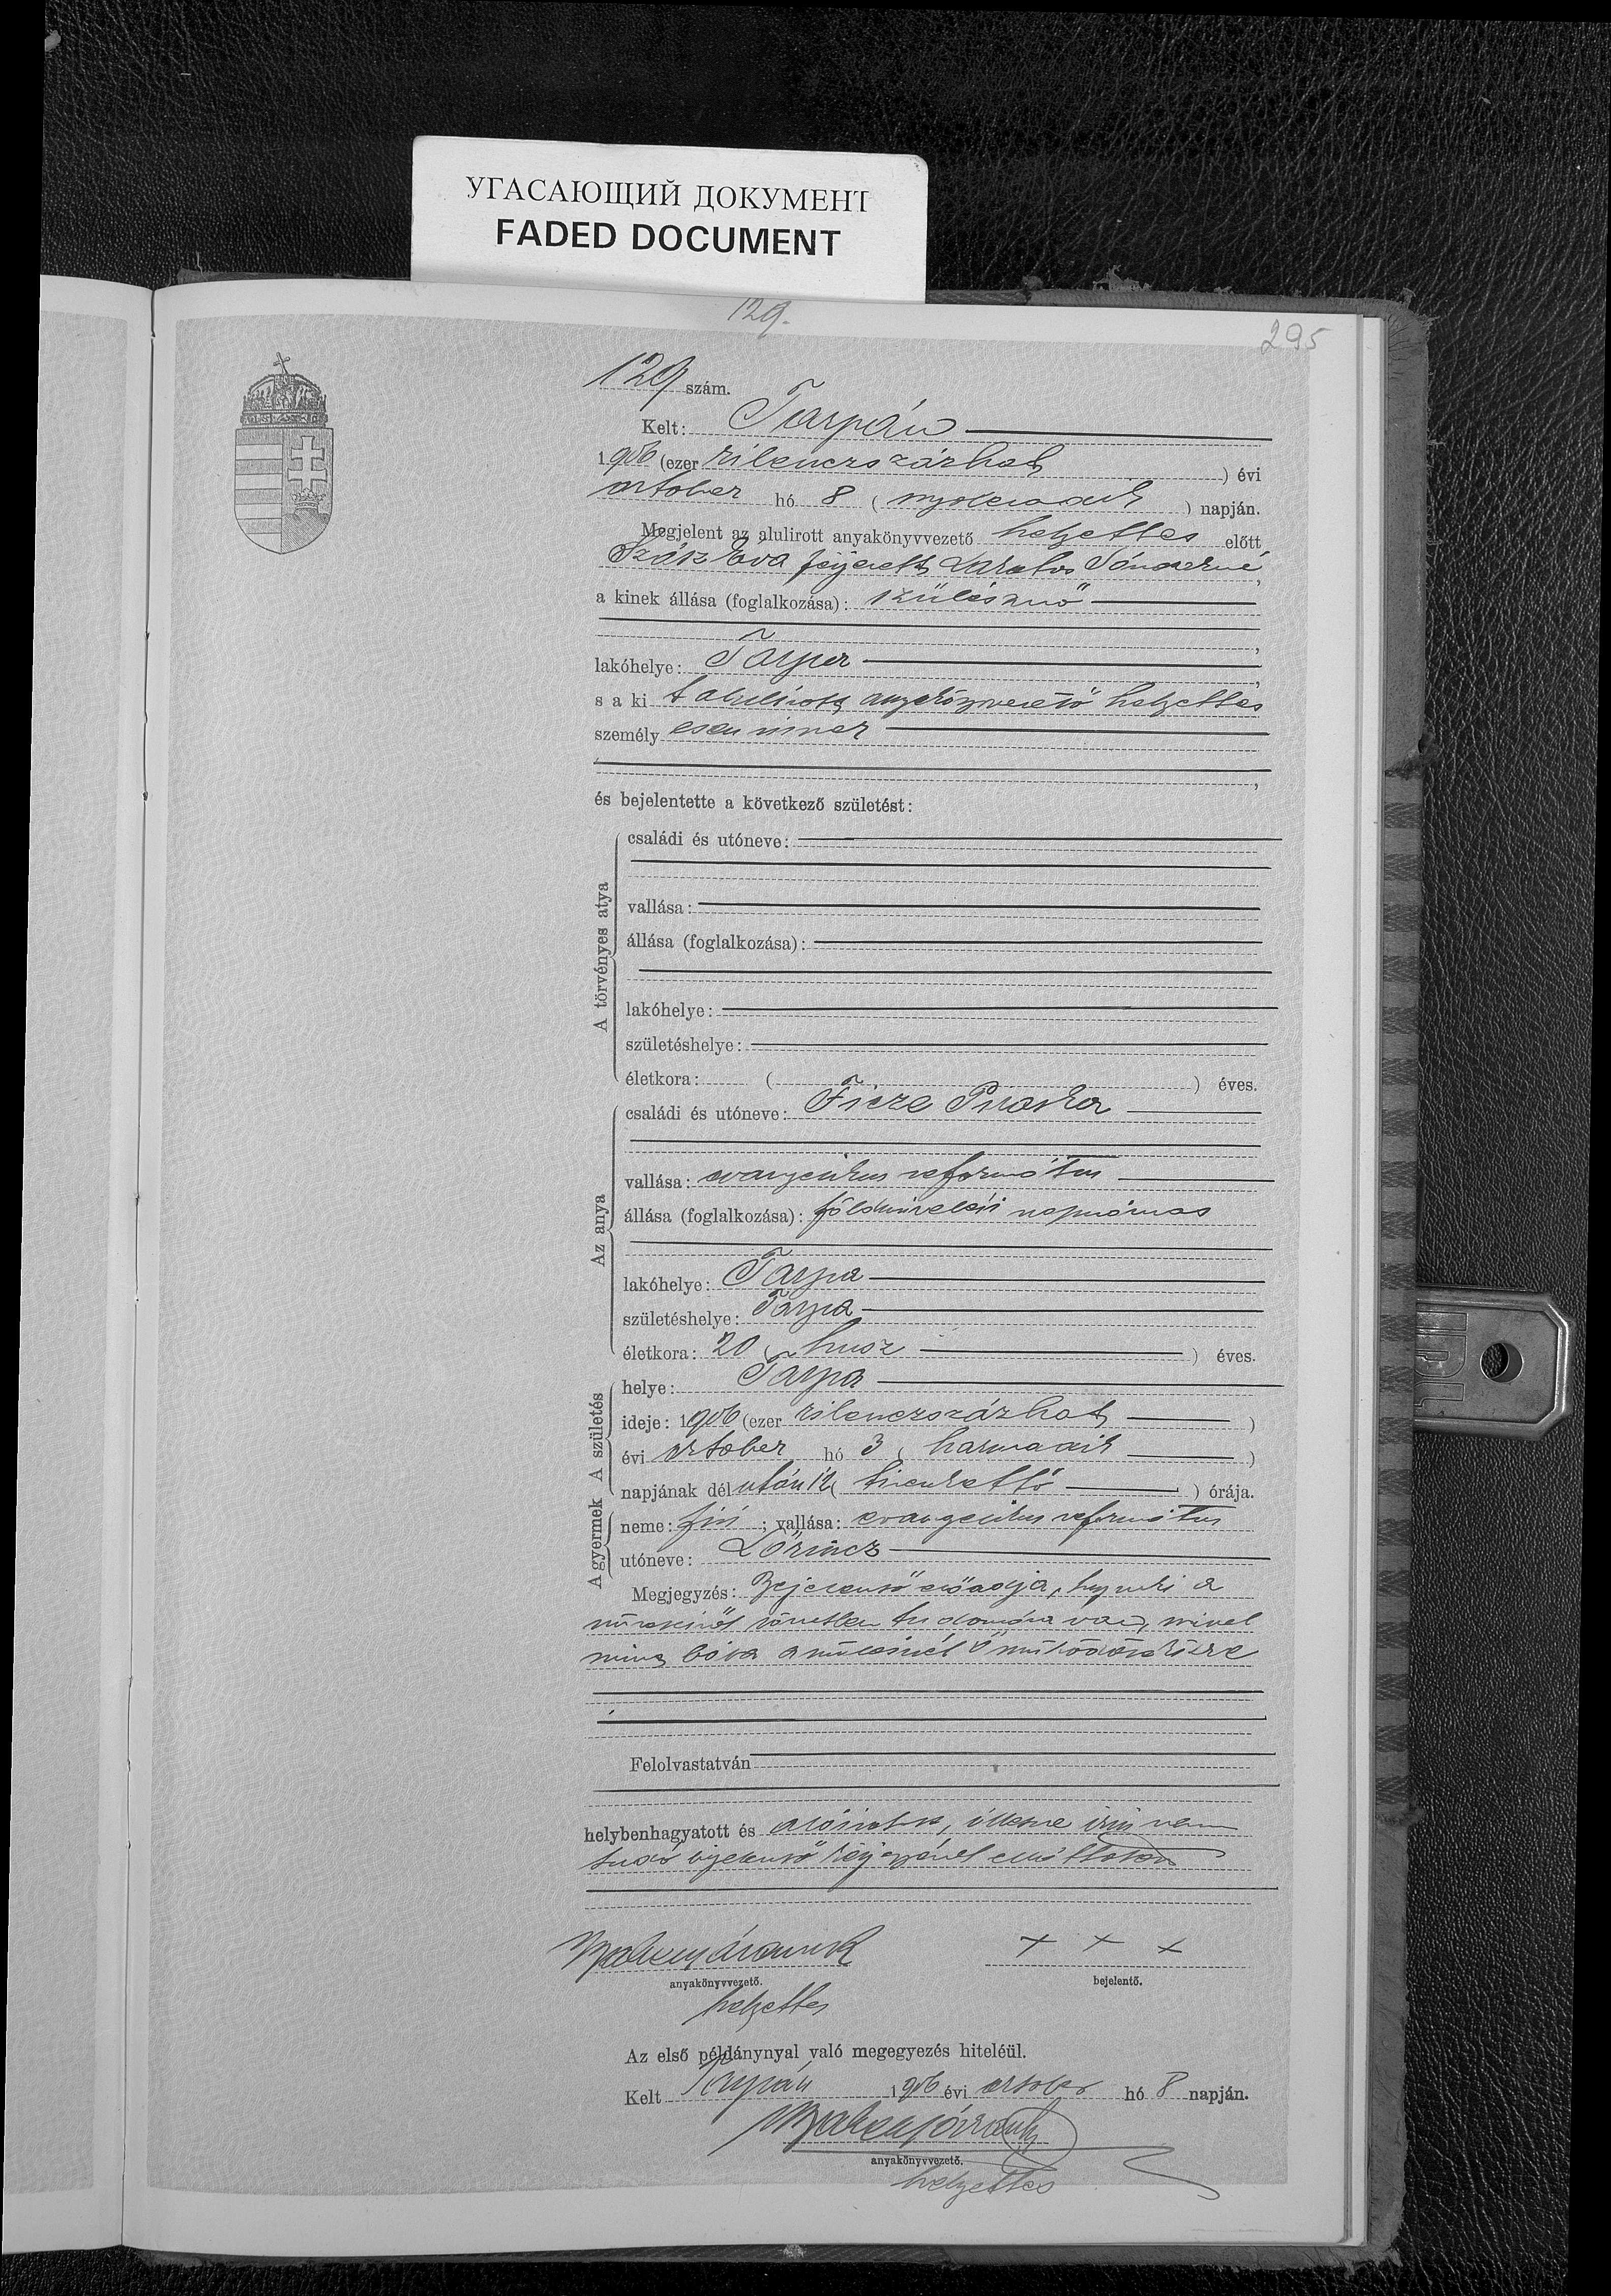 УГАСАЮЩИЙ ДОКУМЕНТ
FADED DOCUMENT
129.
295
129 szám.
Kelt: Tarpán
1906 (ezer kilenczszázhat) évi
október hó 8 (nyolczadik) napján.
Megjelent az alulirott anyakönyvvezető helyettes előtt
Szász Éva férjezett Sándorné,
a kinek állása (foglalkozása): szülésznő
,
lakóhelye: Tarpa
,
s a ki t alulirott anyakönyvvezető helyettes
személy esen ismer
,
és bejelentette a következő születést:
A törvényes atya
családi és utóneve:
vallása:
állása (foglalkozása):
lakóhelye:
születéshelye:
életkora: ( ) éves.
Az anya
családi és utóneve: Ficze Piroska
vallása: evangelikus református
állása (foglalkozása): földmivelési napszámos
lakóhelye: Tarpa
születéshelye: Tarpa
életkora: 20 (husz) éves.
A születés
helye: Tarpa
ideje: 1906 (ezer kilenczszázhat)
évi október hó 3 (harmadik)
napjának délután 12 (tizenkettő) órája.
A gyermek
neme: fiú; vallása: evangelikus református
utóneve: Lőrincz
Megjegyzés: Bejelentő előadja, hogy neki a
születésről közvetlen tudomása van, mivel
mint bába a szülésnél ő működött közre
Felolvastatván
helybenhagyatott és aláiratott, illetve irni nem
tudó bejelentő kézjegyével elláttatott
+ + +
anyakönyvvezető.
bejelentő.
helyettes
Az első példánynyal való megegyezés hiteléül.
Kelt Tarpán 1906 évi október hó 8 napján.
anyakönyvvezető.
helyettes